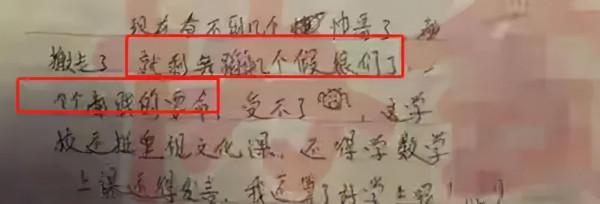 现在看不到几个帅哥了，都
搬走了，就剩有几个假娘们了，
个个的要命，受不了，这学
校还挺重视文化课，还得学数学
上课还得发言，我还算了好学上呢！